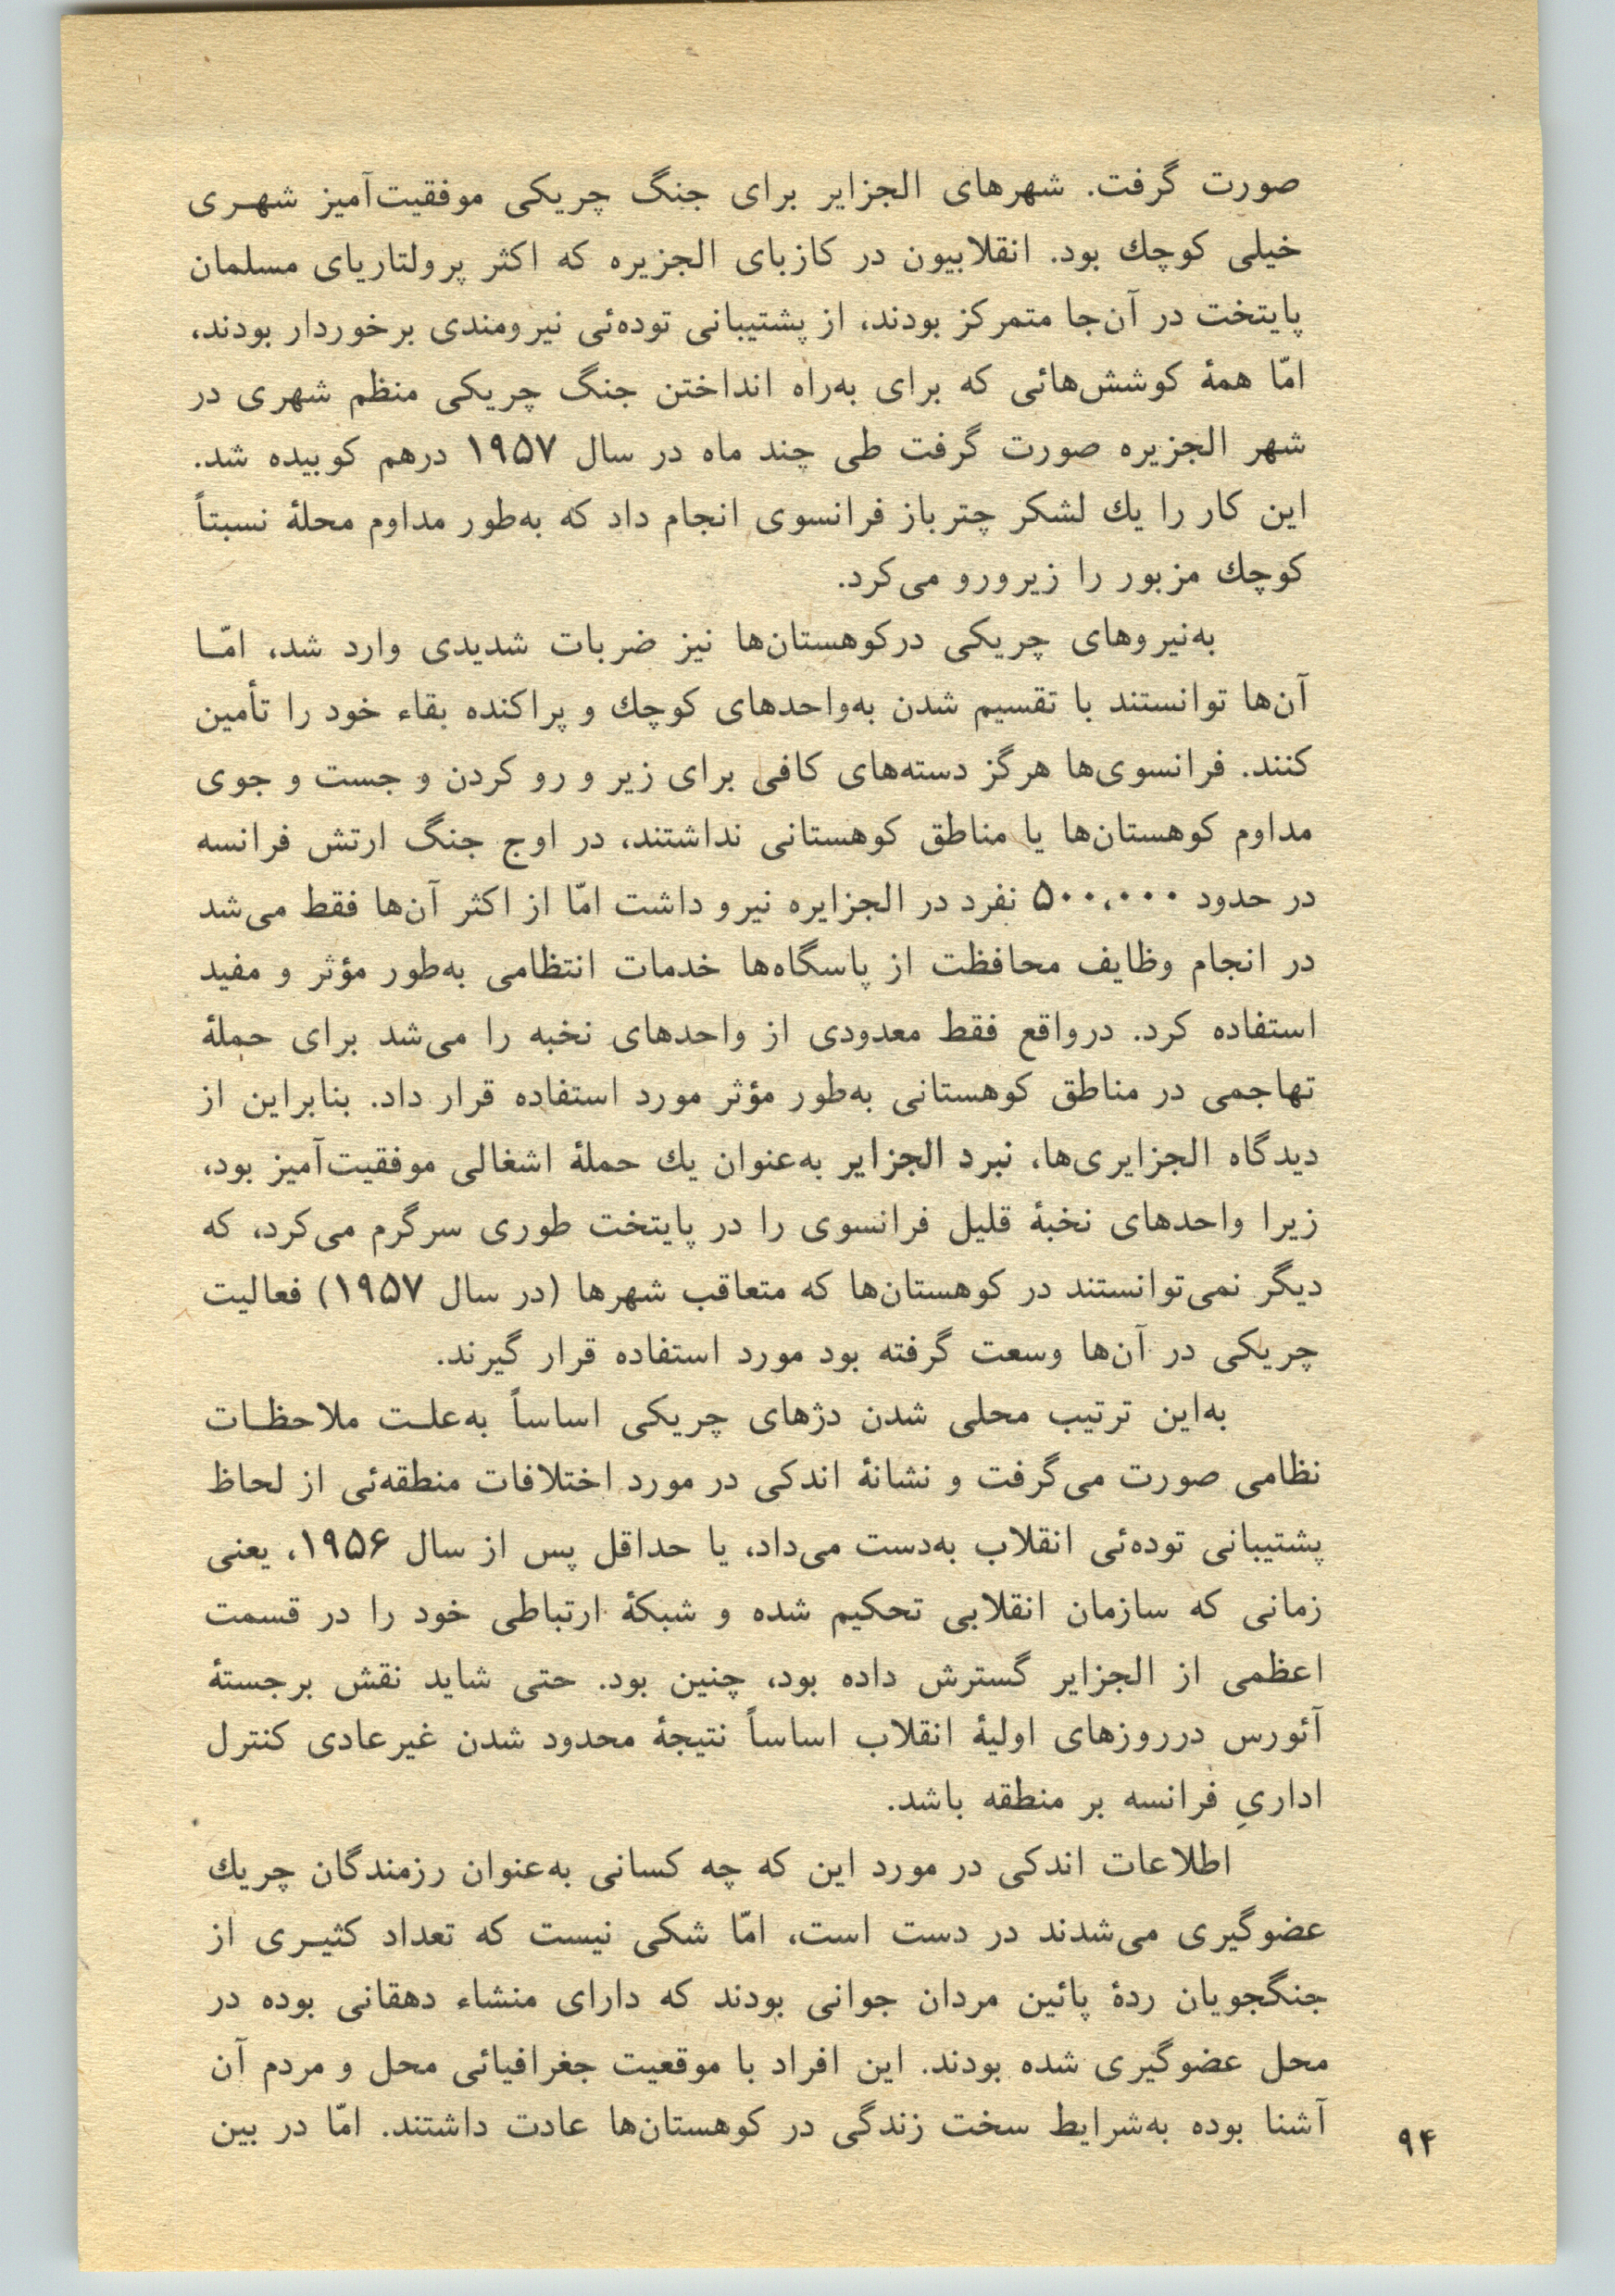 صورت گرفت. شهرهای الجزایر برای جنگ چریکی موفقیت‌آمیز شهـری
خیلی کوچك بود. انقلابیون در کازبای الجزیره که اکثر پرولتاریای مسلمان
پایتخت در آن‌جا متمرکز بودند، از پشتیبانی توده‌ئی نیرومندی برخوردار بودند،
امّا همهٔ کوشش‌هائی که برای به‌راه انداختن جنگ چریکی منظم شهری در
شهر الجزیره صورت گرفت طی چند ماه در سال ۱۹۵۷ درهم کوبیده شد.
این کار را یك لشکر چترباز فرانسوی انجام داد که به‌طور مداوم محلهٔ نسبتاً
کوچك مزبور را زیرورو می‌کرد.
به‌نیروهای چریکی درکوهستان‌ها نیز ضربات شدیدی وارد شد، امّـا
آن‌ها توانستند با تقسیم شدن به‌واحدهای کوچك و پراکنده بقاء خود را تأمین
کنند. فرانسوی‌ها هرگز دسته‌های کافی برای زیر و رو کردن و جست و جوی
مداوم کوهستان‌ها یا مناطق کوهستانی نداشتند، در اوج جنگ ارتش فرانسه
در حدود ۵۰۰،۰۰۰ نفرد در الجزایره نیرو داشت امّا از اکثر آن‌ها فقط می‌شد
در انجام وظایف محافظت از پاسگاه‌ها خدمات انتظامی به‌طور مؤثر و مفید
استفاده کرد. درواقع فقط معدودی از واحدهای نخبه را می‌شد برای حملهٔ
تهاجمی در مناطق کوهستانی به‌طور مؤثر مورد استفاده قرار داد. بنابراین از
دیدگاه الجزایری‌ها، نبرد الجزایر به‌عنوان یك حملهٔ اشغالی موفقیت‌آمیز بود،
زیرا واحدهای نخبهٔ قلیل فرانسوی را در پایتخت طوری سرگرم می‌کرد، که
دیگر نمی‌توانستند در کوهستان‌ها که متعاقب شهرها (در سال ۱۹۵۷) فعالیت
چریکی در آن‌ها وسعت گرفته بود مورد استفاده قرار گیرند.
به‌این ترتیب محلی شدن دژهای چریکی اساساً به‌علـت ملاحظـات
نظامی صورت می‌گرفت و نشانهٔ اندکی در مورد اختلافات منطقه‌ئی از لحاظ
پشتیبانی توده‌ئی انقلاب به‌دست می‌داد، یا حداقل پس از سال ۱۹۵۶، یعنی
زمانی که سازمان انقلابی تحکیم شده و شبکهٔ ارتباطی خود را در قسمت
اعظمی از الجزایر گسترش داده بود، چنین بود. حتی شاید نقش برجستهٔ
آئورس درروزهای اولیهٔ انقلاب اساساً نتیجهٔ محدود شدن غیرعادی کنترل
اداریِ فرانسه بر منطقه باشد.
اطلاعات اندکی در مورد این که چه کسانی به‌عنوان رزمندگان چریك
عضوگیری می‌شدند در دست است، امّا شکی نیست که تعداد کثیـری از
جنگجویان ردهٔ پائین مردان جوانی بودند که دارای منشاء دهقانی بوده در
محل عضوگیری شده بودند. این افراد با موقعیت جغرافیائی محل و مردم آن
آشنا بوده به‌شرایط سخت زندگی در کوهستان‌ها عادت داشتند. امّا در بین
۹۴